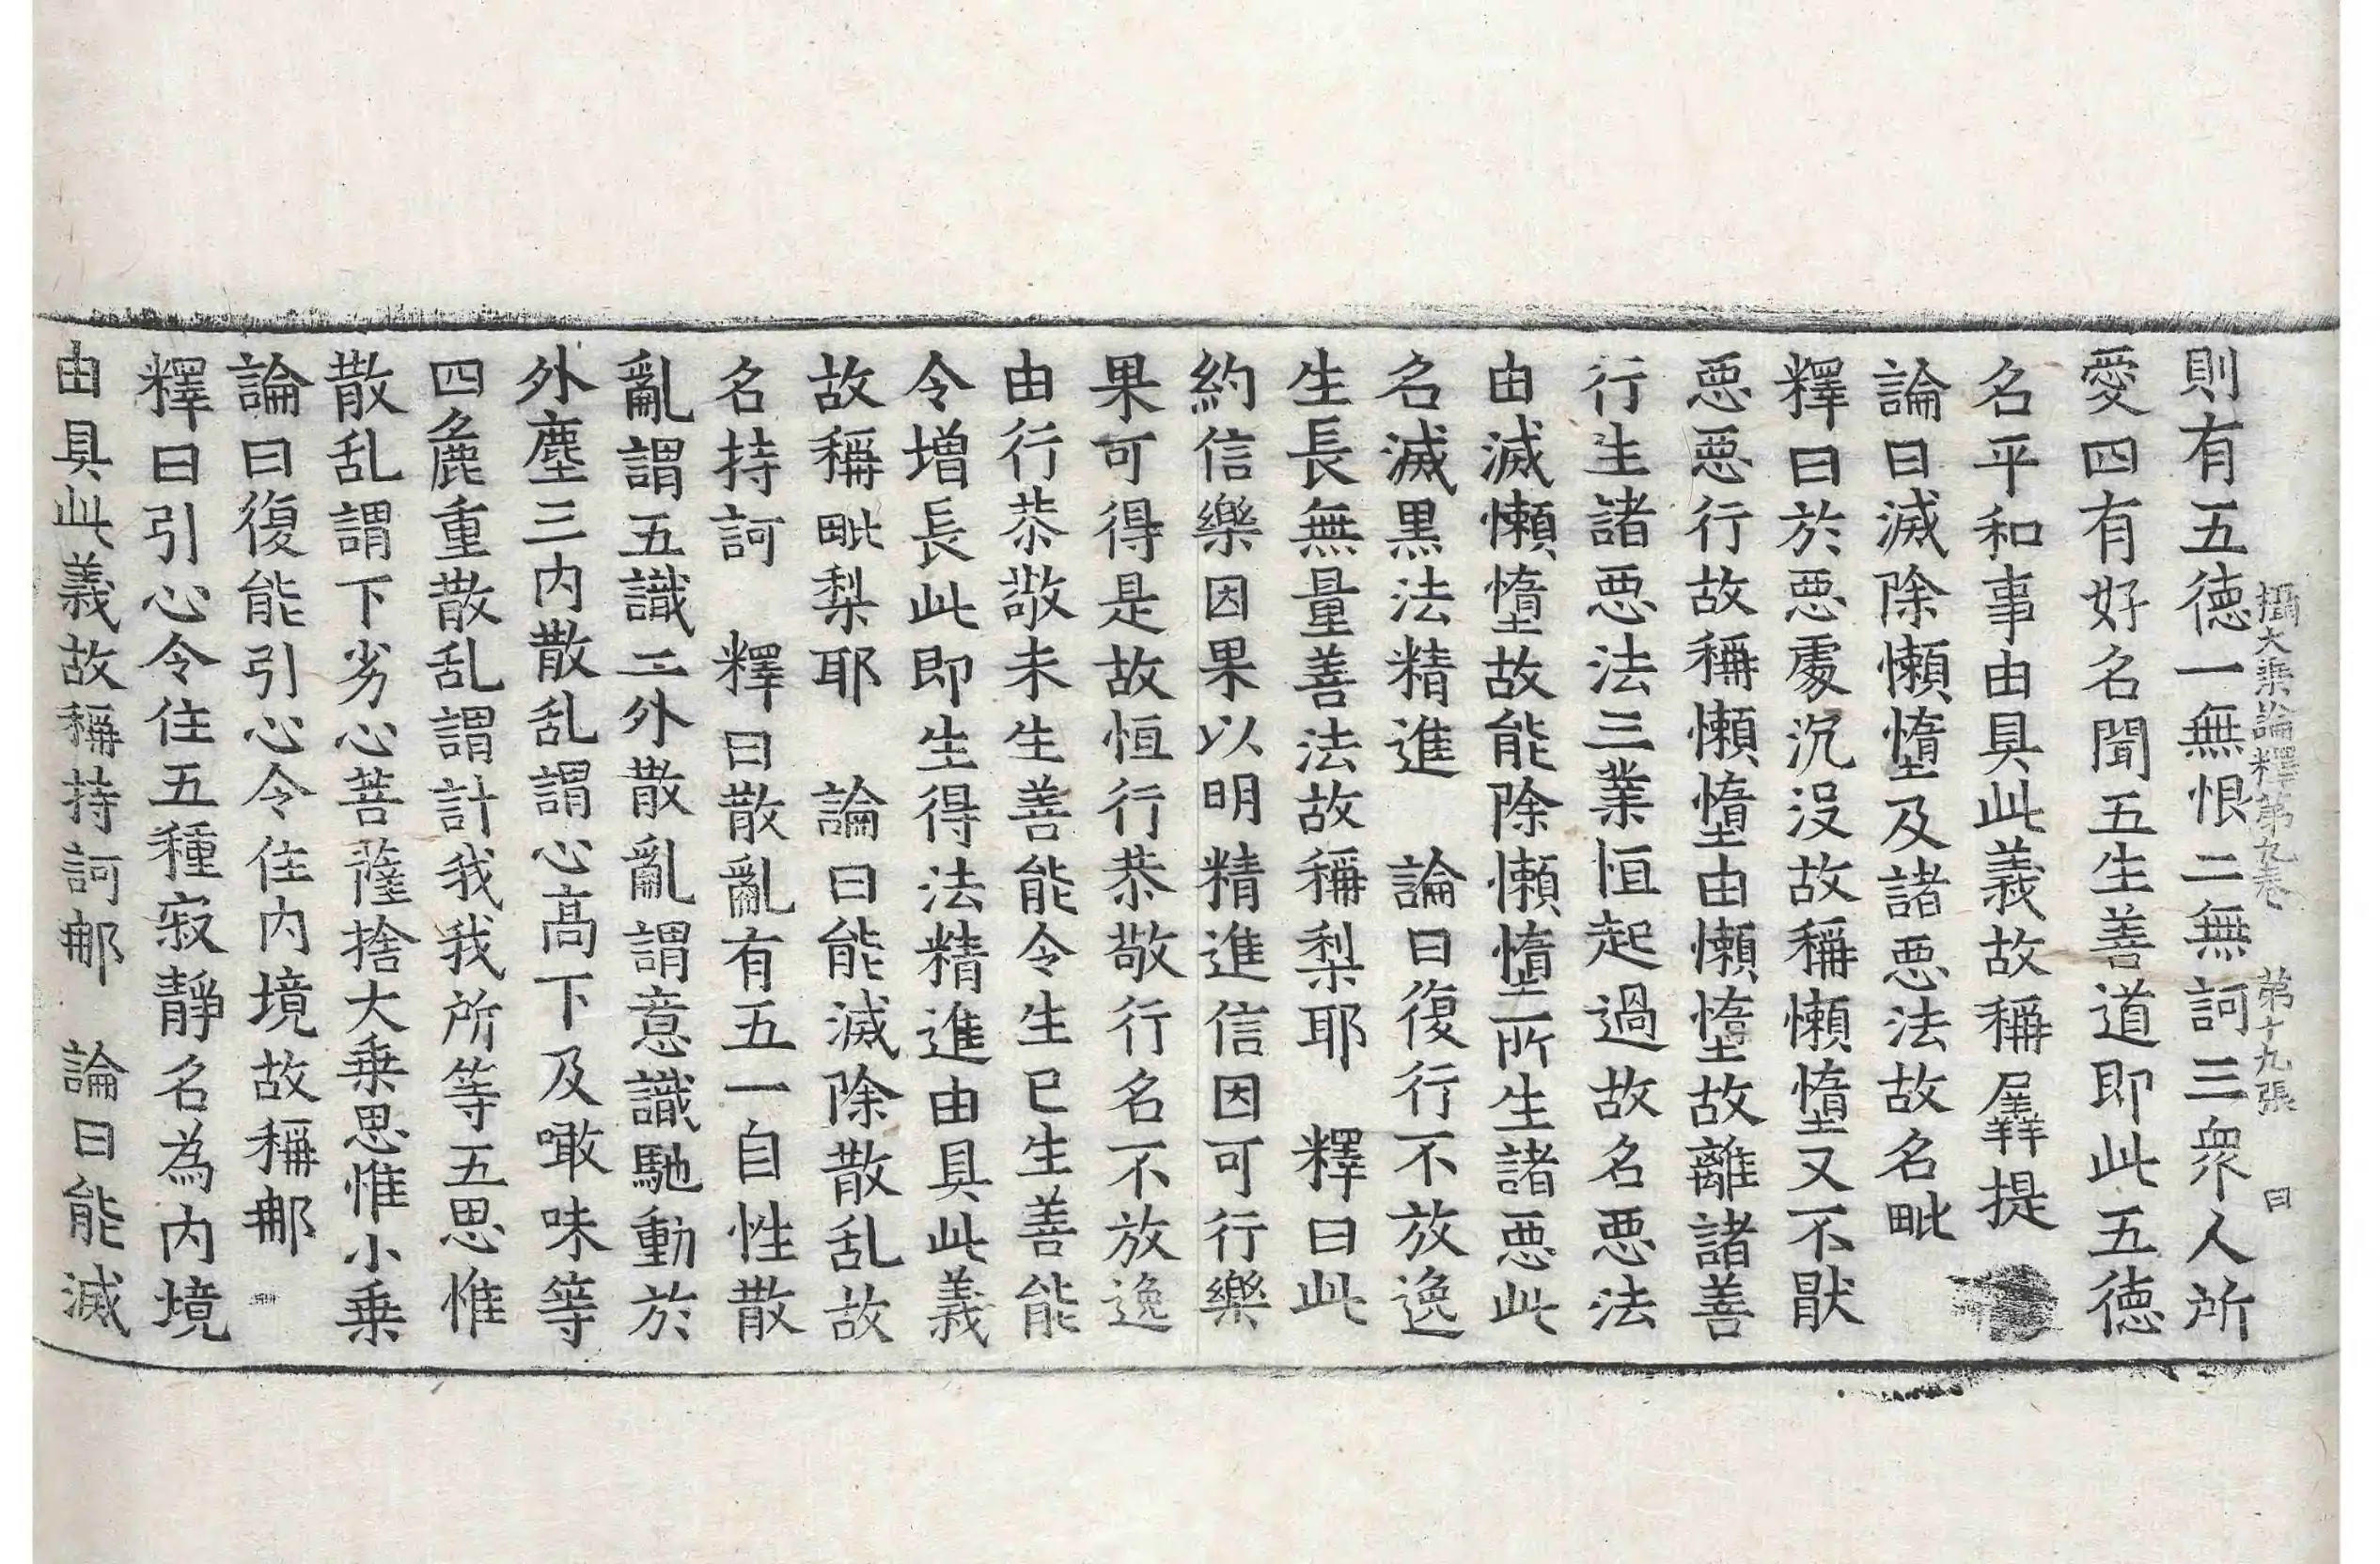 攝大乘論釋第九卷　第十九張　曰
則有五德一無恨二無訶三衆人所
愛四有好名聞五生善道即此五德
名平和事由具此義故稱羼提
論曰滅除懶惰及諸惡法故名毗
釋曰於惡處沉沒故稱懶惰又不猒
惡惡行故稱懶惰由懶惰故離諸善
行生諸惡法三業恒起過故名惡法
由滅懶惰故能除懶惰所生諸惡此
名滅黑法精進　論曰復行不放逸
生長無量善法故稱梨耶　釋曰此
約信樂因果以明精進信因可行樂
果可得是故恒行恭敬行名不放逸
由行恭敬未生善能令生已生善能
令增長此即生得法精進由具此義
故稱毗梨耶　論曰能滅除散乱故
名持訶　釋曰散亂有五一自性散
亂謂五識二外散亂謂意識馳動於
外塵三内散乱謂心高下及噉味等
四麁重散乱謂計我我所等五思惟
散乱謂下劣心菩薩捨大乗思惟小乗
論曰復能引心令住内境故稱那
釋曰引心令住五種寂靜名為内境
由具此義故稱持訶那　論曰能滅